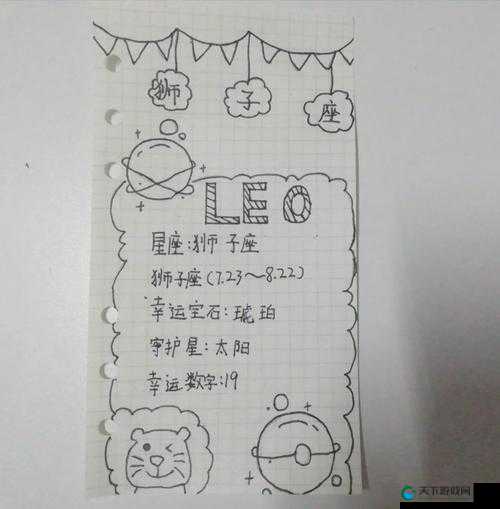 狮子座
LEO
星座:狮子座
狮子座(7.23~8.22)
幸运宝石:琥珀
守护星:太阳
幸运数字:19
天下游戏网